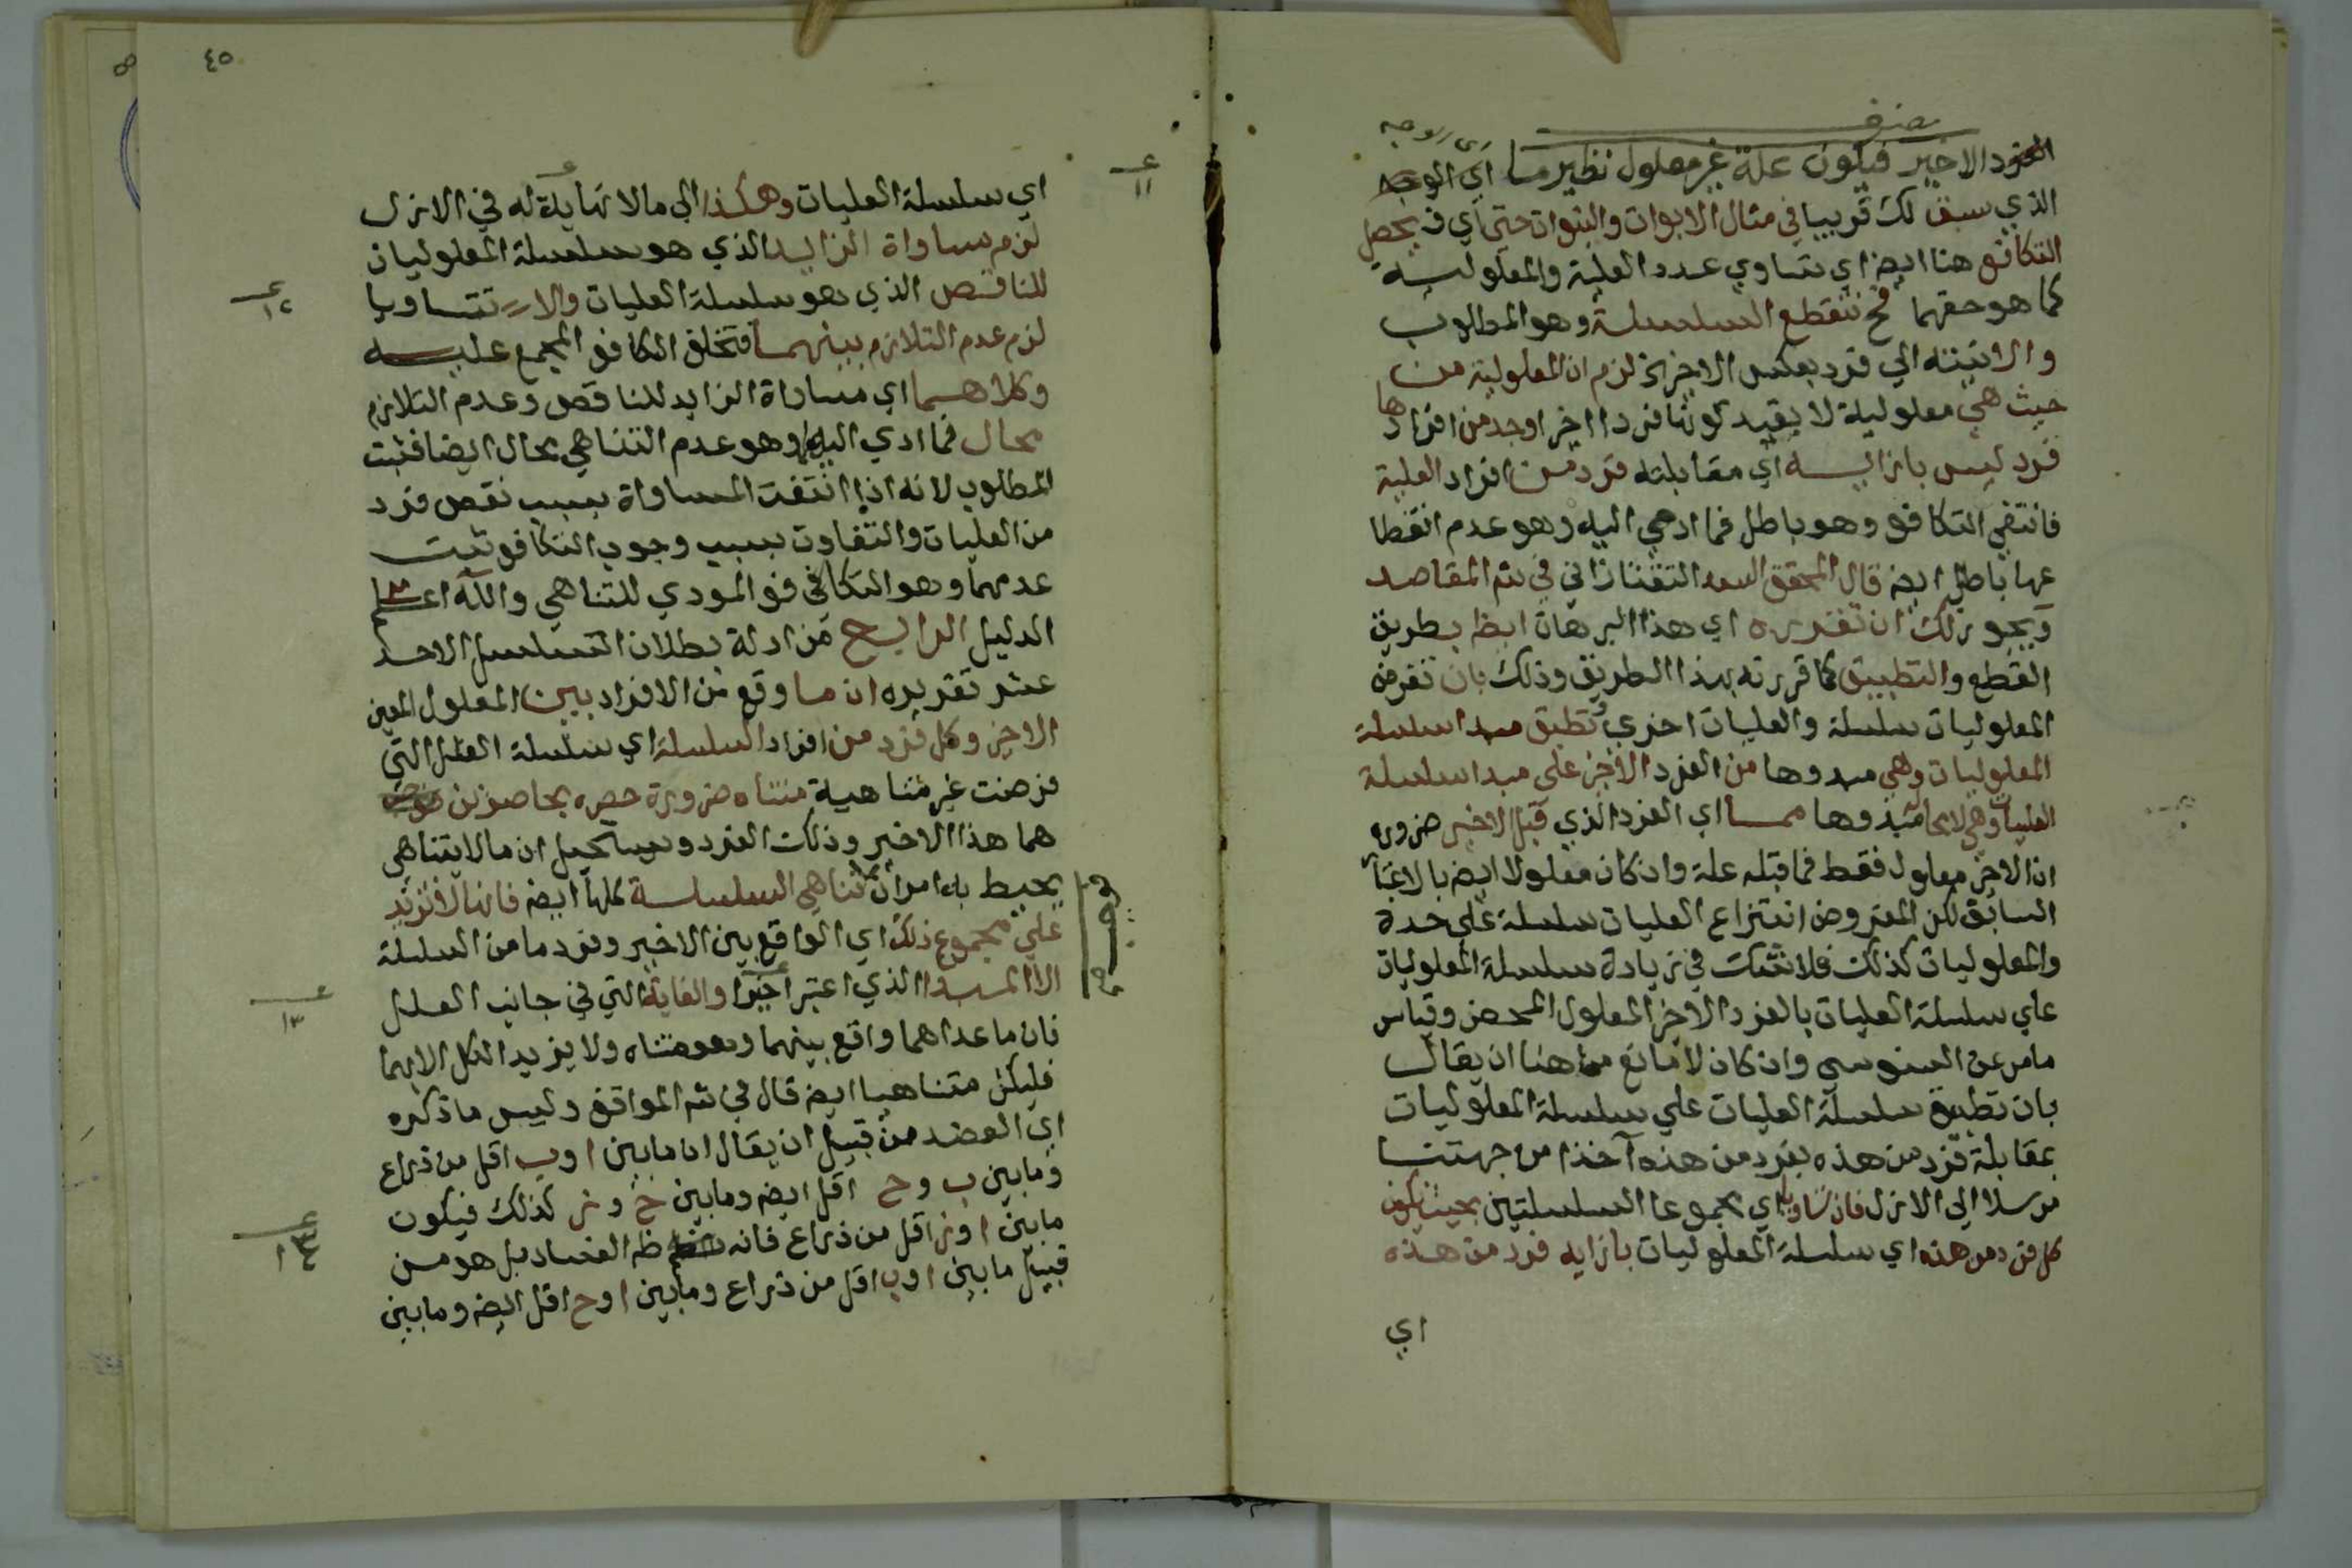 الفرد الاخير فيكون علة غير معلول نظير ما اي الوجه
الذي سبق لك قريبا في مثال الابوات والبنوات حتى اي ف يحصل
التكافؤ هنا ايضا اي تساوي عدد العلية والمعلولية
كما هو حقهما فح تنقطع السلسلة وهو المطلوب
والا ينته الي فرد بعكس الاخير لزم ان المعلولية من
حيث هي معلولية لا بقيد كونها فردا اخيرا وجد من افرادها
فرد ليس بازايه اي مقابلته فرد من افراد العلية
فانتفي التكافو وهو باطل فما ادي اليه وهو عدم انقطا
عها باطل ايضه قال المحقق السعد التفتازاني في شم المقاصد
ويجوز لك ان تقرره اي هذا البرهان ايضا بطريق
القطع والتطبيق كما قررته بهذا الطريق وذلك بان تفرض
المعلوليات سلسلة والعليات اخري وتطبق مبدا سلسلة
المعلوليات وهي مبدوها من الفرد الاخير علي مبدا سلسلة
العليات وهي مبدوها مما اي الفرد الذي قبل الاخير ضرورة
ان الاخير معلول فقط فما قبله علة وان كان معلولا ايضه بالاعتبا
السابق لكن المفروض انتزاع العليات سلسلة علي حدة
والمعلوليات كذلك فلا شك في زيادة سلسلة المعلوليات
علي سلسلة العليات بالفرد الاخير المعلول المحض وقياس
ما مر عن السنوسي وان كان لا مانع هنا ان يقال
بان تطبق سلسلة العليات علي سلسلة المعلوليات
بمقابلة فرد من هذه بفرد من هذه آخذا من جهتنا
مرسلا الي الازل فان تساويا اي مجموعا السلسلتين بحيث يكون
كل فرد من هذه اي سلسلة المعلوليات بازايه فرد من هذه
اي
٤٥
اي سلسلة العليات وهكذا الي مالا نهاية له في الازل
لزم مساواة الزايد الذي هو سلسلة المعلوليات
للناقص الذي هو سلسلة العليات والا تتساويا
لزم عدم التلازم بينهما فتخلف التكافو المجمع عليه
وكلاهما اي مساواة الزايد للناقص وعدم التلازم
محال فما ادي اليه وهو عدم التناهي محال ايضا فثبت
المطلوب لانه اذا انتفت المساواة بسبب نقص فرد
من العليات والتفاوت بسبب وجوب التكافو ثبت
عدمهما وهو التكافو المودي للتناهي والله اعلم
الدليل الرابع من ادلة بطلان التسلسل الاحد
عشر تقريره ان ما وقع من الافراد بين المعلول المعين
الاخير وكل فرد من افراد السلسلة اي سلسلة العلل التي
فرضت غير متناهية متناه ضرورة حصره بحاصرين
هما هذا الاخير وذلك الفرد ويستحيل ان مالا يتناهي
يحيط به امران فتناهي السلسلة كلها ايضه فانها لا تزيد
علي مجموع ذلك اي الواقع بين الاخير وفرد ما من السلسلة
الا المبدا الذي اعتبر اخيرا والغاية التي في جانب العلل
فان ماعداهما واقع بينهما وهو متناه ولا يزيد الكل الا بهما
فليكن متناهيا ايضه قال في شم المواقف وليس ما ذكره
اي العضد من قبيل ان يقال ان ما بين ا و ب اقل من ذراع
وما بين ب و ح اقل ايضه وما بين ح و ز كذلك فيكون
ما بين ا و ز اقل من ذراع فانه ظه الفساد بل هو من
قبيل ما بين ا و ب اقل من ذراع وما بين ا و ح اقل ايضه وما بين